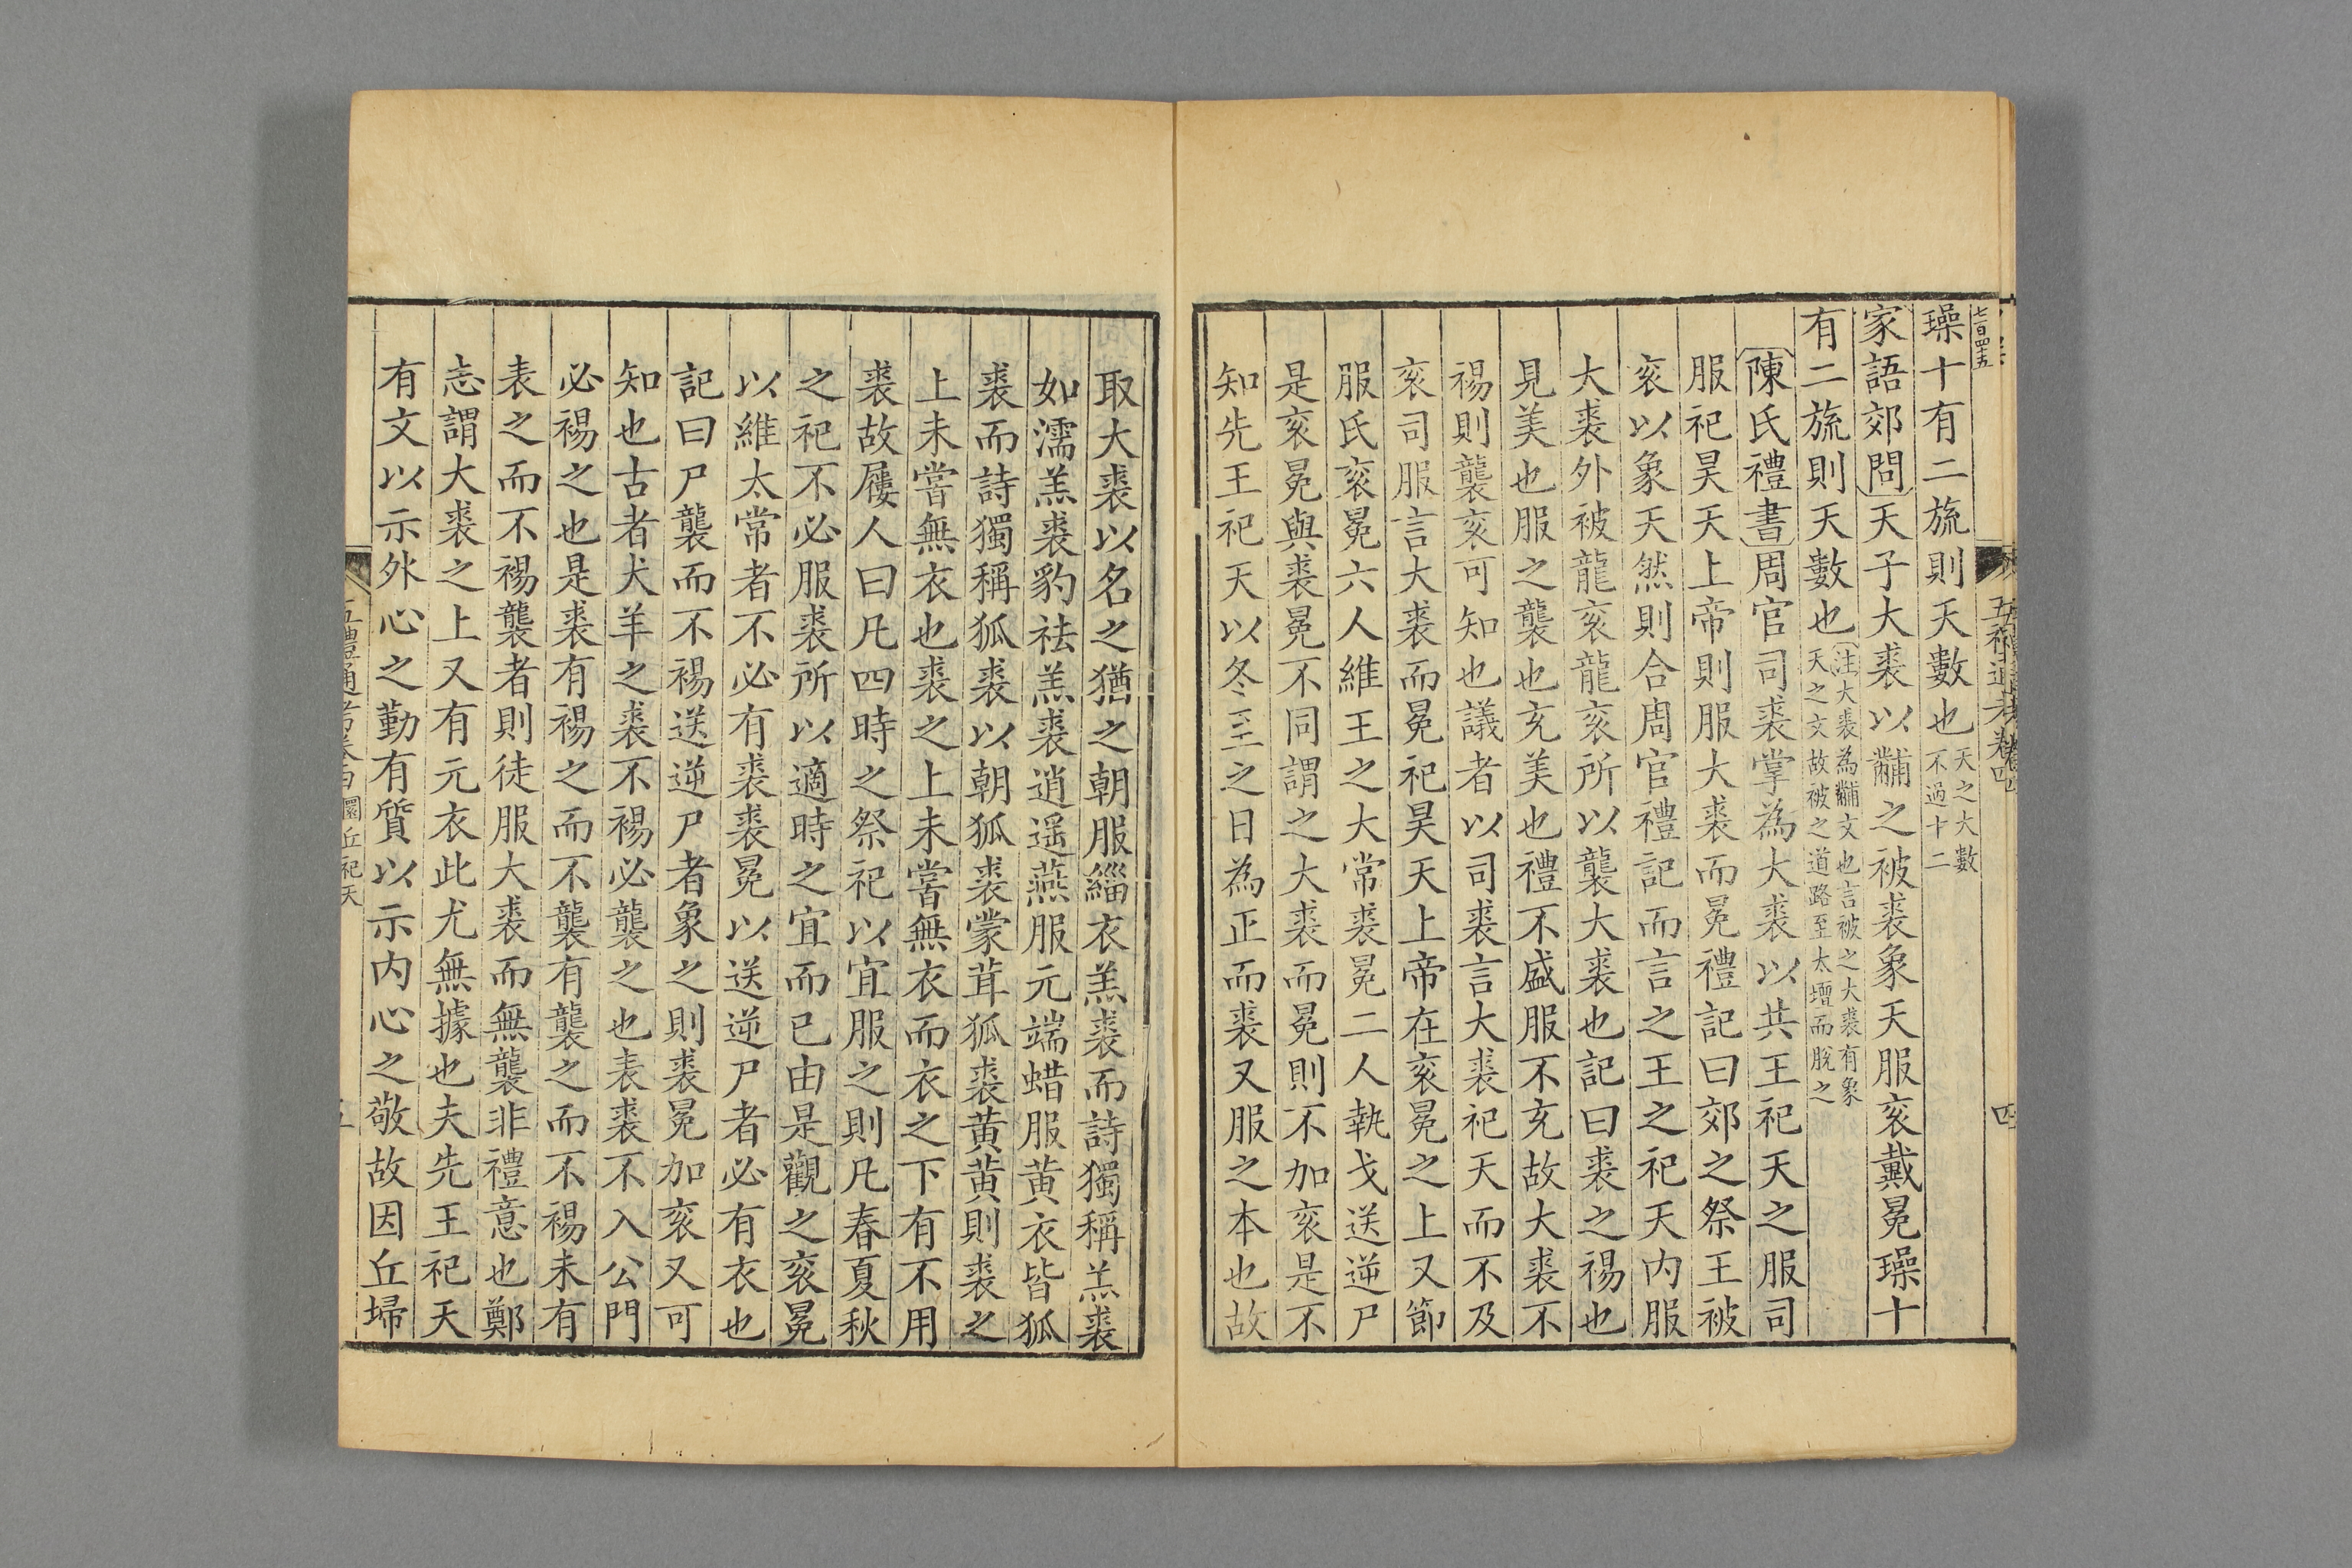 七百四十五
璪十有二旒則天數也天之大數不過十二
家語郊問天子大裘以黼之被裘象天服衮戴冕璪十
有二旒則天數也注大裘為黼文也言被之大裘有象天之文故被之道路至太壇而脫之
陳氏禮書周官司裘掌為大裘以共王祀天之服司
服祀昊天上帝則服大裘而冕禮記曰郊之祭王被
衮以象天然則合周官禮記而言之王之祀天内服
大裘外被龍衮龍衮所以襲大裘也記曰裘之裼也
見美也服之襲也充美也禮不盛服不充故大裘不
裼則襲衮可知也議者以司裘言大裘祀天而不及
衮司服言大裘而冕祀昊天上帝在衮冕之上又節
服氏衮冕六人維王之大常裘冕二人執戈送逆尸
是衮冕與裘冕不同謂之大裘而冕則不加衮是不
知先王祀天以冬至之日為正而裘又服之本也故
取大裘以名之猶之朝服緇衣羔裘而詩獨稱羔裘
如濡羔裘豹袪羔裘逍遥燕服元端蜡服黄衣皆狐
裘而詩獨稱狐裘以朝狐裘蒙茸狐裘黄黄則裘之
上未嘗無衣也裘之上未嘗無衣而衣之下有不用
裘故屨人曰凡四時之祭祀以宜服之則凡春夏秋
之祀不必服裘所以適時之宜而已由是觀之衮冕
以維太常者不必有裘裘冕以送逆尸者必有衣也
記曰尸襲而不裼送逆尸者象之則裘冕加衮又可
知也古者犬羊之裘不裼必襲之也表裘不入公門
必裼之也是裘有裼之而不襲有襲之而不裼未有
表之而不裼襲者則徒服大裘而無襲非禮意也鄭
志謂大裘之上又有元衣此尤無據也夫先王祀天
有文以示外心之勤有質以示内心之敬故因丘埽
五禮通考卷四 圜丘祀天